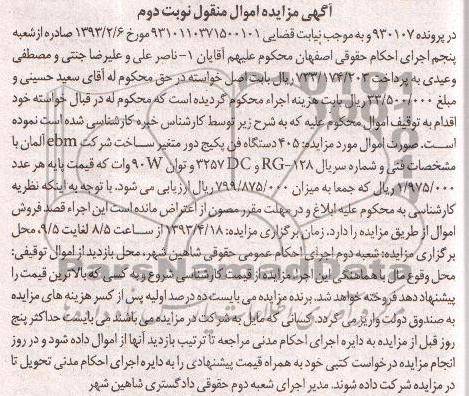 آگهی مزایده اموال منقول نوبت دوم
در پرونده ۹۳۰۱۰۷ و به موجب نیابت قضایی ۹۳۱۰۱۱۰۳۷۱۵۰۰۱۰۱ مورخ ۱۳۹۳/۲/۶ صادره از شعبه
پنجم اجرای احکام حقوقی اصفهان محکوم علیهم آقایان ۱- ناصر علی و علیرضا جنتی و مصطفی
وعیدی به پرداخت ۷۳۳/۱۷۴/۲۰۳ ریال بابت اصل خواسته در حق محکوم له آقای سعید حسینی و
مبلغ ۳۳/۵۰۰/۰۰۰ ریال بابت هزینه اجراء محکوم گردیده است که محکوم له در قبال خواسته خود
اقدام به توقیف اموال محکوم علیه که به شرح زیر توسط کارشناس خبره کارشناسی شده است نموده
است. صورت اموال مورد مزایده: ۴۰۵ دستگاه فن پکیج دور متغیر ساخت شرکت ebm آلمان با
مشخصات فنی و شماره سریال RG-۱۲۸ و ۳۲۵۷ DC و توان ۹۰W وات که قیمت پایه هر عدد
۱/۹۷۵/۰۰۰ ریال که جمعا به میزان ۷۹۹/۸۷۵/۰۰۰ ریال ارزیابی می شود. با توجه به اینکه نظریه
کارشناسی به محکوم علیه ابلاغ و در مهلت مقرر مصون از اعتراض مانده است این اجراء قصد فروش
اموال از طریق مزایده را دارد. زمان برگزاری مزایده: ۱۳۹۳/۴/۱۸ از ساعت ۸/۵ لغایت ۹/۵، محل
برگزاری مزایده: شعبه دوم اجرای احکام عمومی حقوقی شاهین شهر، محل بازدید از اموال توقیفی:
محل وقوع مال با هماهنگی این اجرا، مزایده از قیمت کارشناسی شروع و به کسی که بالاترین قیمت را
پیشنهاد دهد فروخته خواهد شد. برنده مزایده می بایست ده درصد اولیه پس از کسر هزینه های مزایده
به صندوق دولت واریز می گردد. کسانی که مایل به شرکت در مزایده می باشند می بایست حداکثر پنج
روز قبل از مزایده به دایره اجرای احکام مدنی مراجعه تا ترتیب بازدید آنها از اموال داده شود و در روز
انجام مزایده درخواست کتبی خود به همراه قیمت پیشنهادی را به دایره اجرای احکام مدنی تحویل تا
در مزایده شرکت داده شوند. مدیر اجرای شعبه دوم حقوقی دادگستری شاهین شهر